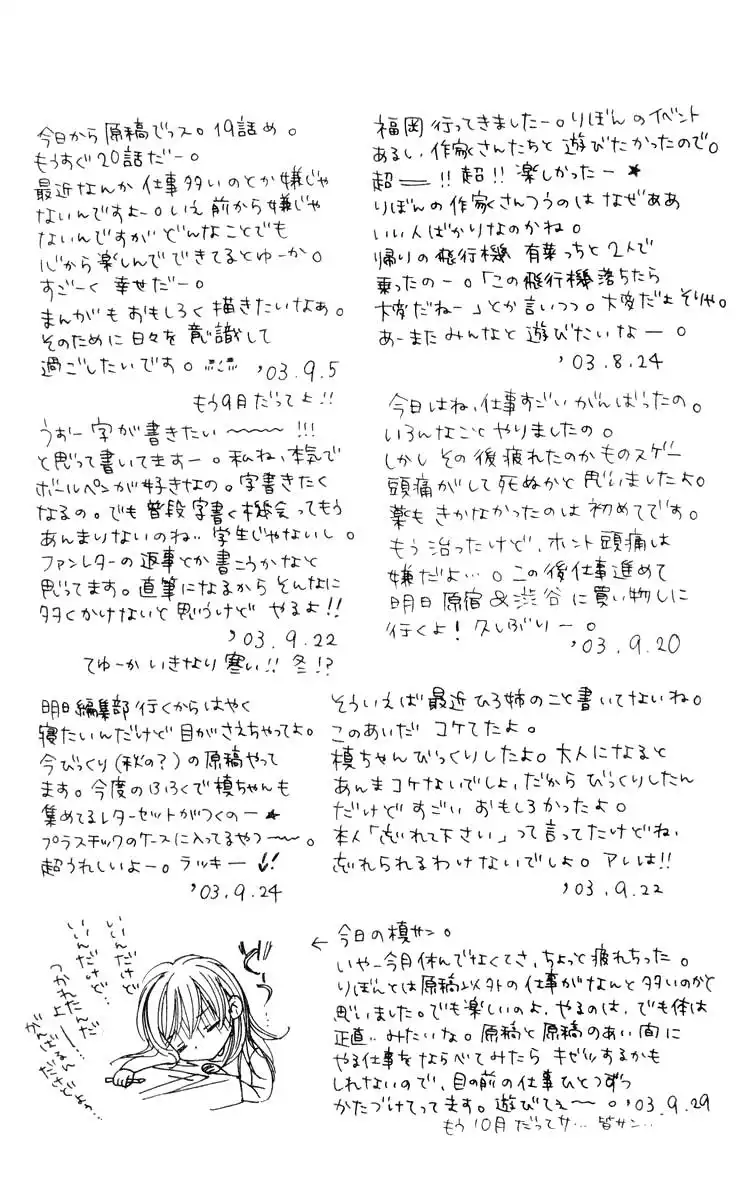 福岡行ってきましたー。りぼんのイベント
あるし、作家さんたちと遊びたかったので。
超――!! 超!! 楽しかったー★
りぼんの作家さんつうのは なぜああ
いい人ばかりなのかね。
帰りの飛行機 有葉っちと2人で
乗ったのー。「この飛行機落ちたら
大変だねー」とか言いつつ。大変だよそりゃ。
あーまたみんなと遊びたいなー。
'03.8.24
今日から原稿でっス。19話め。
もうすぐ20話だー。
最近なんか仕事多いのとか嫌じゃ
ないんですよー。いえ前から嫌じゃ
ないんですが どんなことでも
心から楽しんでできてるとゆーか。
すごーく幸せだー。
まんがもおもしろく描きたいなぁ。
そのために日々を意識して
過ごしたいです。
'03.9.5
もう9月だってよ!!
今日はね、仕事すごいがんばったの。
いろんなことやりましたの。
しかしその後疲れたのかものスゲー
頭痛がして死ぬかと思いましたよ。
薬もきかなかったのは初めてです。
もう治ったけど、ホント頭痛は
嫌だよ…。この後仕事進めて
明日原宿&渋谷に買い物しに
行くよ! 久しぶりー。
'03.9.20
うおー字が書きたい〜〜〜!!!
と思って書いてますー。私ね、本気で
ボールペンが好きなの。字書きたく
なるの。でも普段字書く機会ってもう
あんまりないのね.. 学生じゃないし。
ファンレターの返事とか書こうかなと
思ってます。直筆になるからそんなに
多くかけないと思うけど やるよ!!
'03.9.22
てゆーかいきなり寒い!! 冬!?
そういえば最近ひろ姉のこと書いてないね。
このあいだ コケてたよ。
槙ちゃんびっくりしたよ。大人になると
あんまコケないでしょ、だからびっくりしたん
だけどすごいおもしろかったよ。
本人「忘れて下さい」って言ってたけどね、
忘れられるわけないでしょ。アレは!!
'03.9.22
明日編集部行くからはやく
寝たいんだけど目がさえちゃってよ。
今びっくり(秋の?)の原稿やって
ます。今度のふろくで槙ちゃんも
集めてるレターセットがつくのー★
プラスチックのケースに入ってるやつ〜〜。
超うれしいよー。ラッキー!!
'03.9.24
← 今日の槙サン。
いやー今月休んでなくてさ、ちょっと疲れちった。
りぼんとは原稿以外の仕事がなんと多いのかと
思いました。でも楽しいのよ、やるのは、でも体は
正直.. みたいな。原稿と原稿のあい間に
やる仕事をならべてみたら キゼツするかも
しれないので、目の前の仕事ひとつずつ
かたづけてってます。遊びてぇ〜〜。'03.9.29
もう10月だってサ… 皆サン…
ど…っ
いいんだけど
いいんだけど…
つかれたんだ
よー…
がんばるん
だけどよっ…